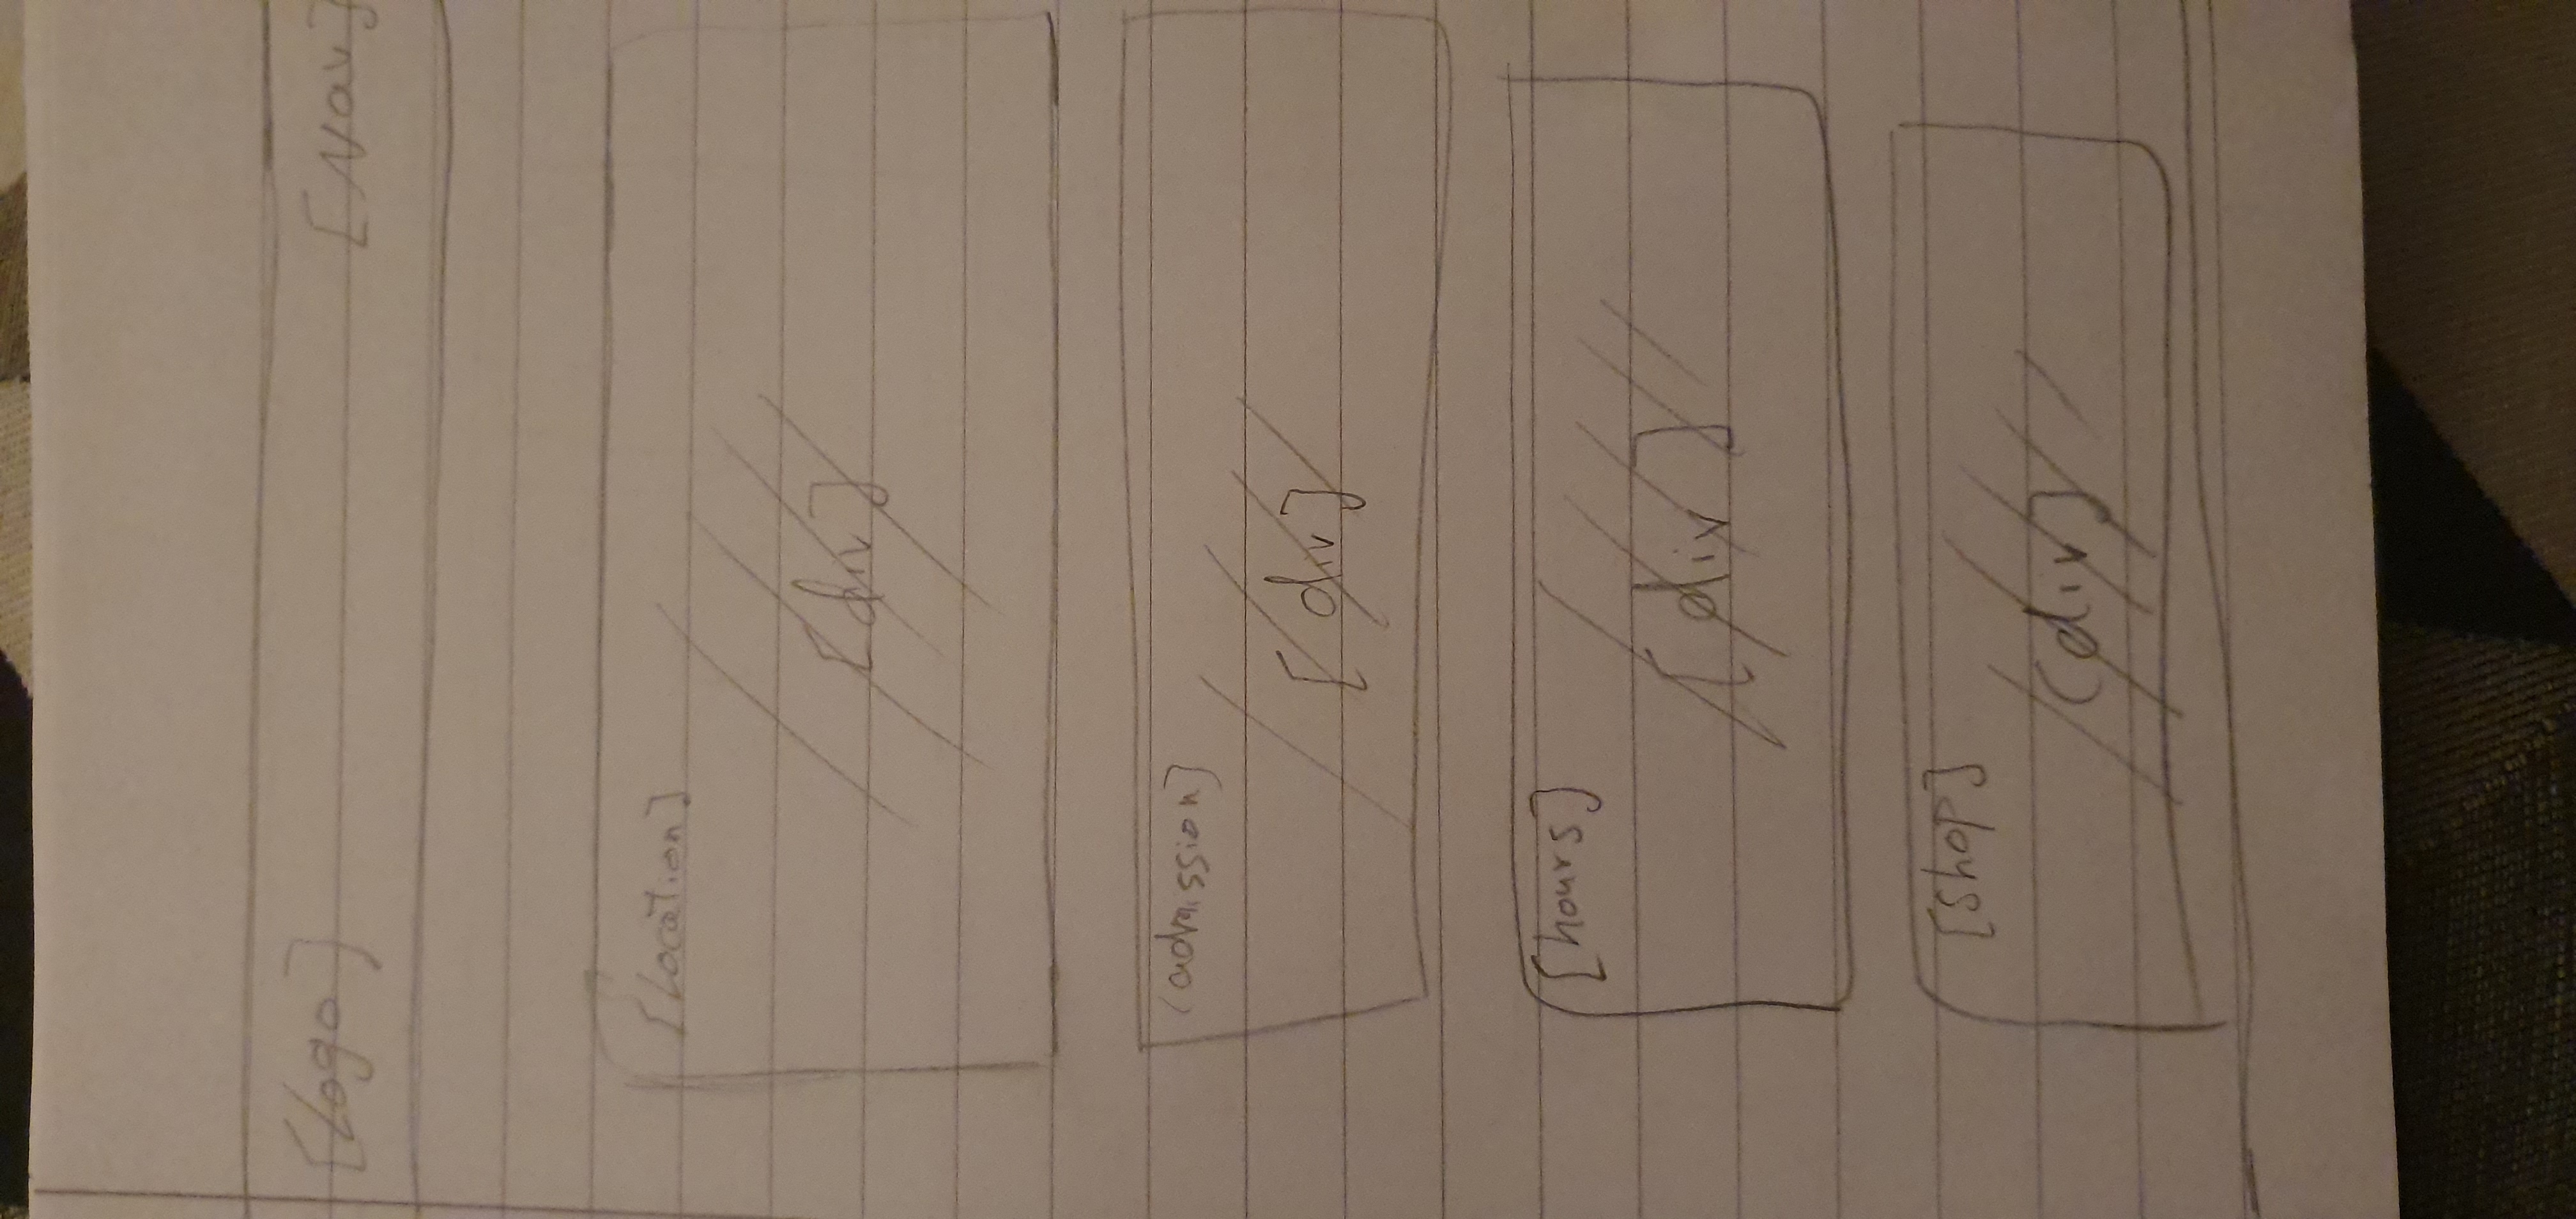 [Logo] [Nav]
[Location]
[div]
(admission]
[div]
[hours]
[div]
[Shop]
(div]